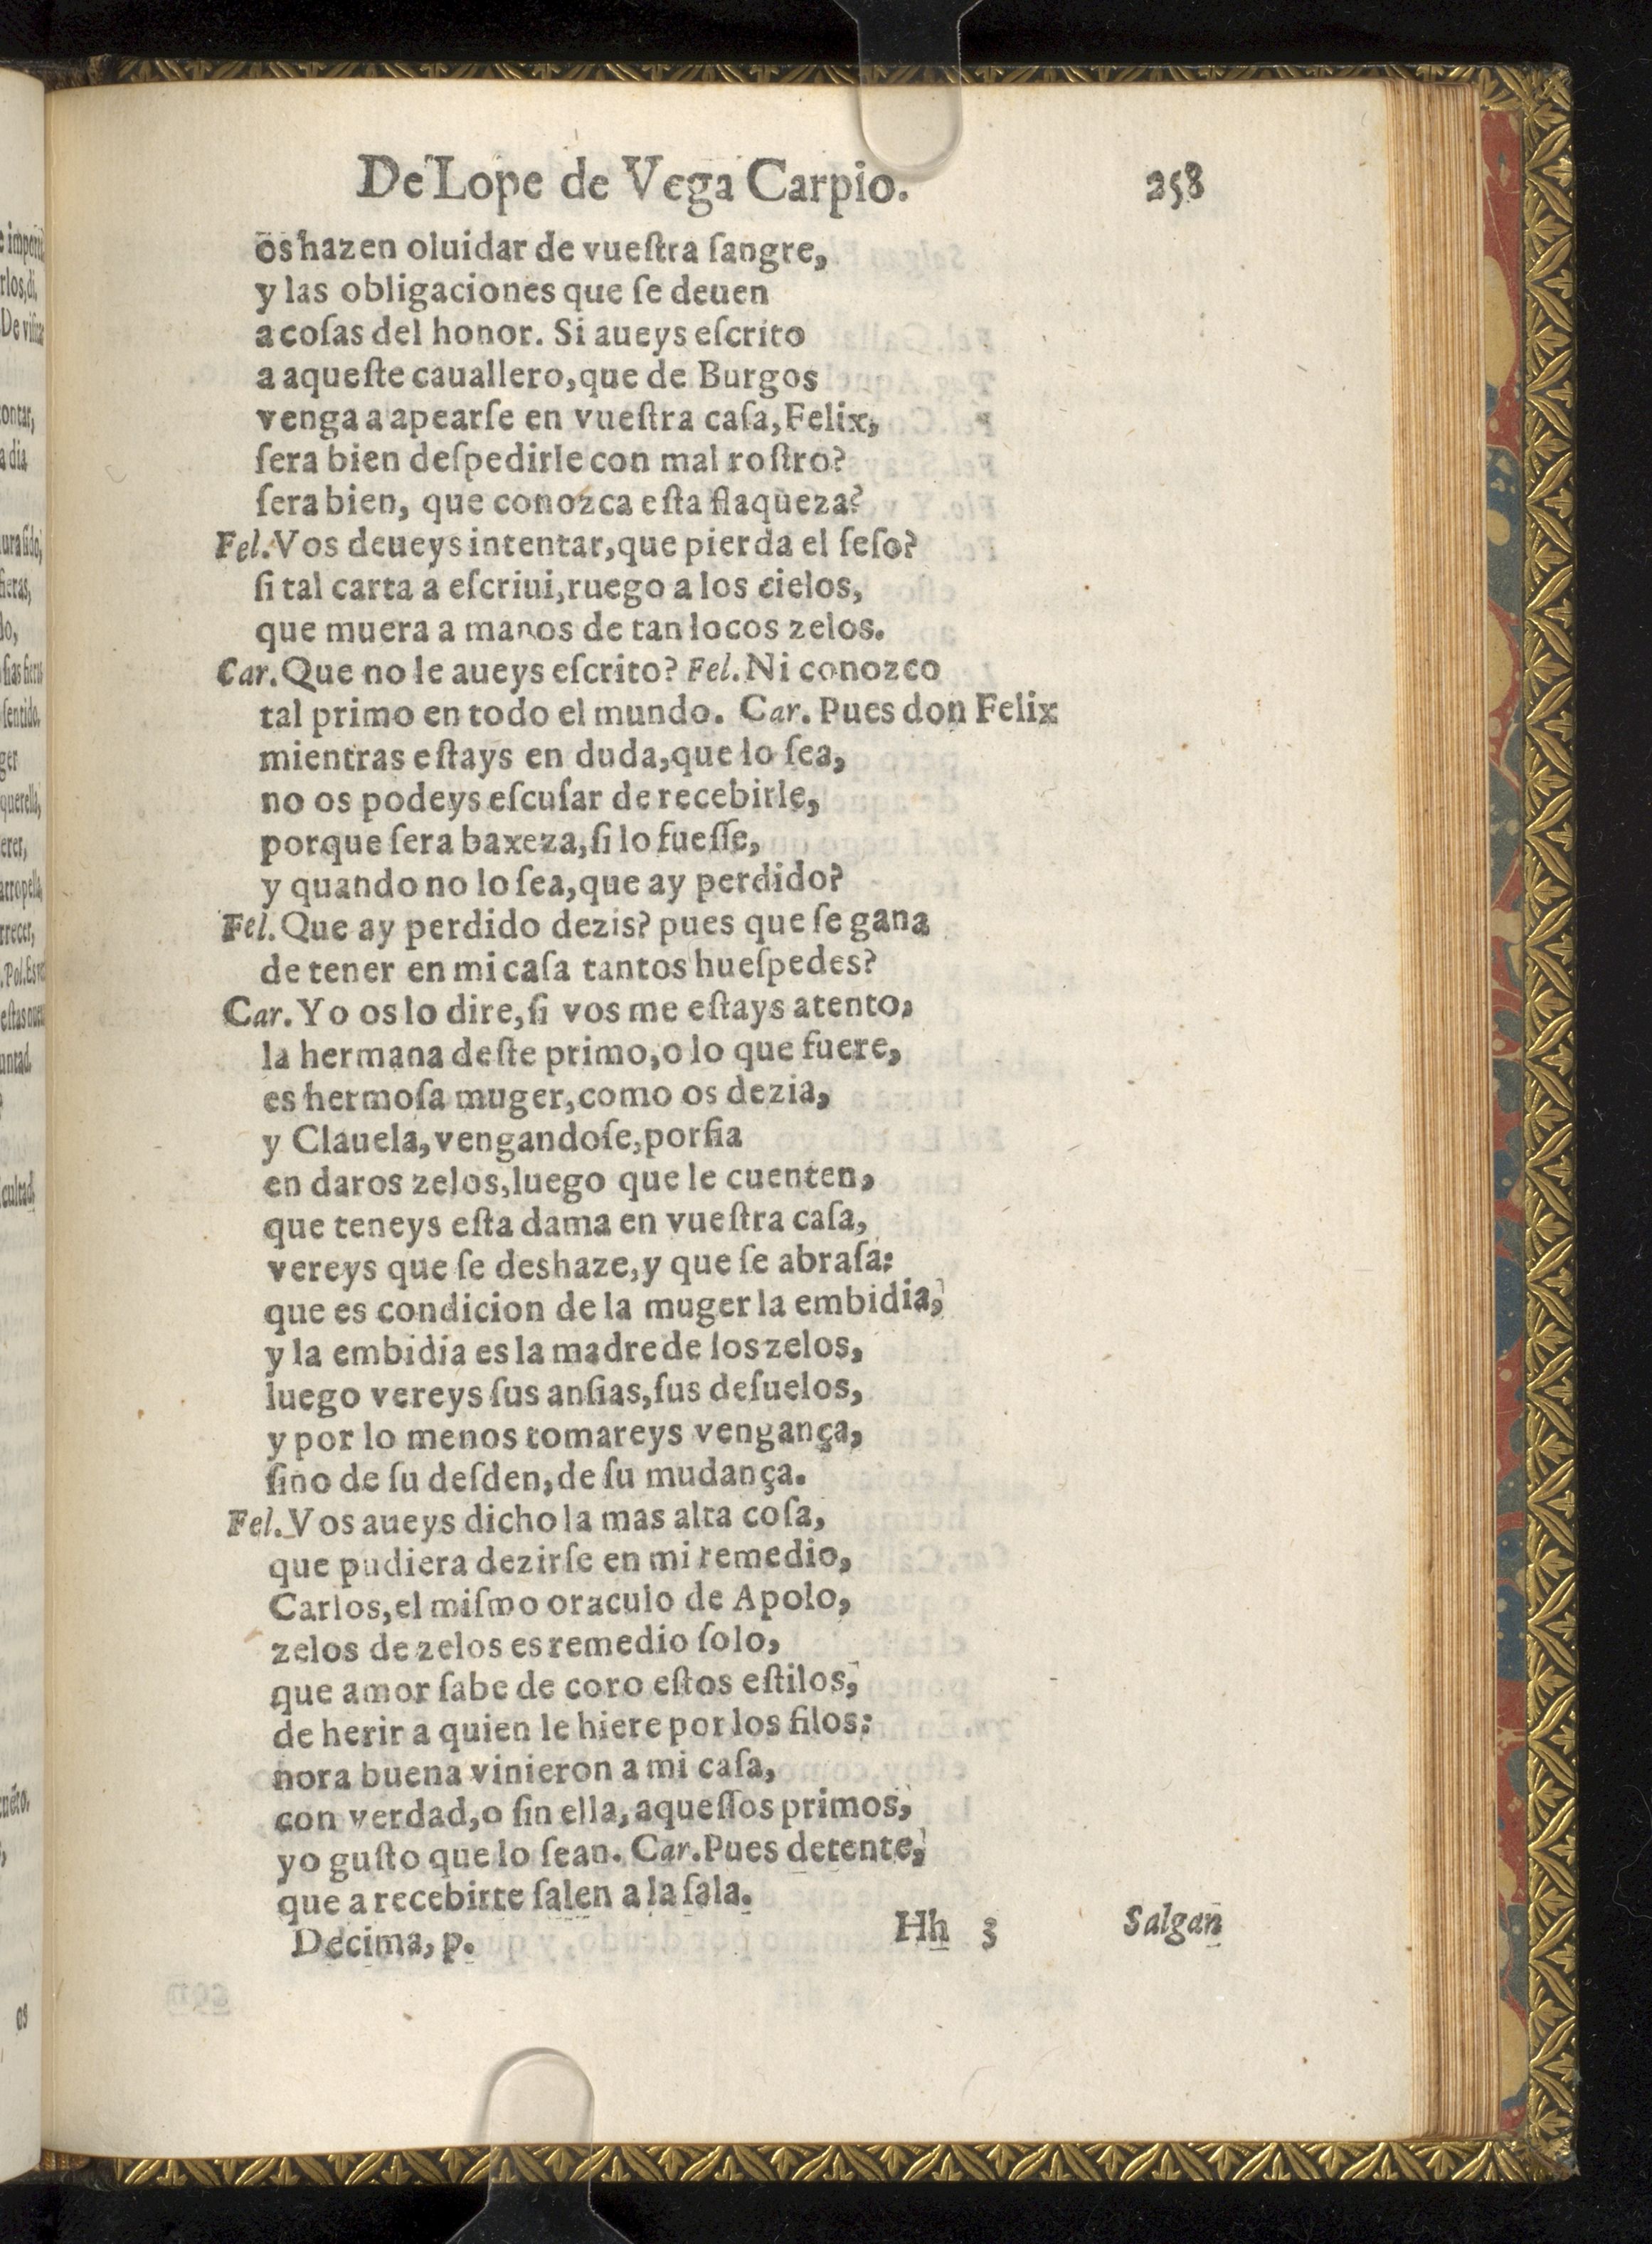 De Lope de Vega Carpio. 258
os hazen oluidar de vueſtra ſangre,
y las obligaciones que ſe deuen
a coſas del honor. Si aueys eſcrito
a aqueſte cauallero, que de Burgos
venga a apearſe en vueſtra caſa, Felix,
ſera bien deſpedirle con mal roſtro?
ſera bien, que conozca eſta flaqueza?
Fel. Vos deueys intentar, que pierda el ſeſo?
ſi tal carta a eſcriui, ruego a los cielos,
que muera a manos de tan locos zelos.
Car. Que no le aueys eſcrito? Fel. Ni conozco
tal primo en todo el mundo. Car. Pues don Felix
mientras eſtays en duda, que lo ſea,
no os podeys eſcuſar de recebirle,
porque ſera baxeza, ſi lo fueſſe,
y quando no lo ſea, que ay perdido?
Fel. Que ay perdido dezis? pues que ſe gana
de tener en mi caſa tantos hueſpedes?
Car. Yo os lo dire, ſi vos me eſtays atento,
la hermana deſte primo, o lo que fuere,
es hermoſa muger, como os dezia,
y Clauela, vengandoſe, porfia
en daros zelos, luego que le cuenten,
que teneys eſta dama en vueſtra caſa,
vereys que ſe deshaze, y que ſe abraſa:
que es condicion de la muger la embidia,
y la embidia es la madre de los zelos,
luego vereys ſus anſias, ſus deſuelos,
y por lo menos tomareys vengança,
ſino de ſu deſden, de ſu mudança.
Fel. Vos aueys dicho la mas alta coſa,
que pudiera dezirſe en mi remedio,
Carlos, el miſmo oraculo de Apolo,
zelos de zelos es remedio ſolo,
que amor ſabe de coro eſtos eſtilos,
de herir a quien le hiere por los filos:
nora buena vinieron a mi caſa,
con verdad, o ſin ella, aqueſſos primos,
yo guſto que lo ſean. Car. Pues detente,
que a recebirte ſalen a la ſala.
Decima, p. Hh 3 Salgan